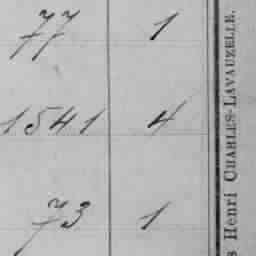 77 1
1541 4
73 1
Henri CHARLES-LAVAUZELLE.